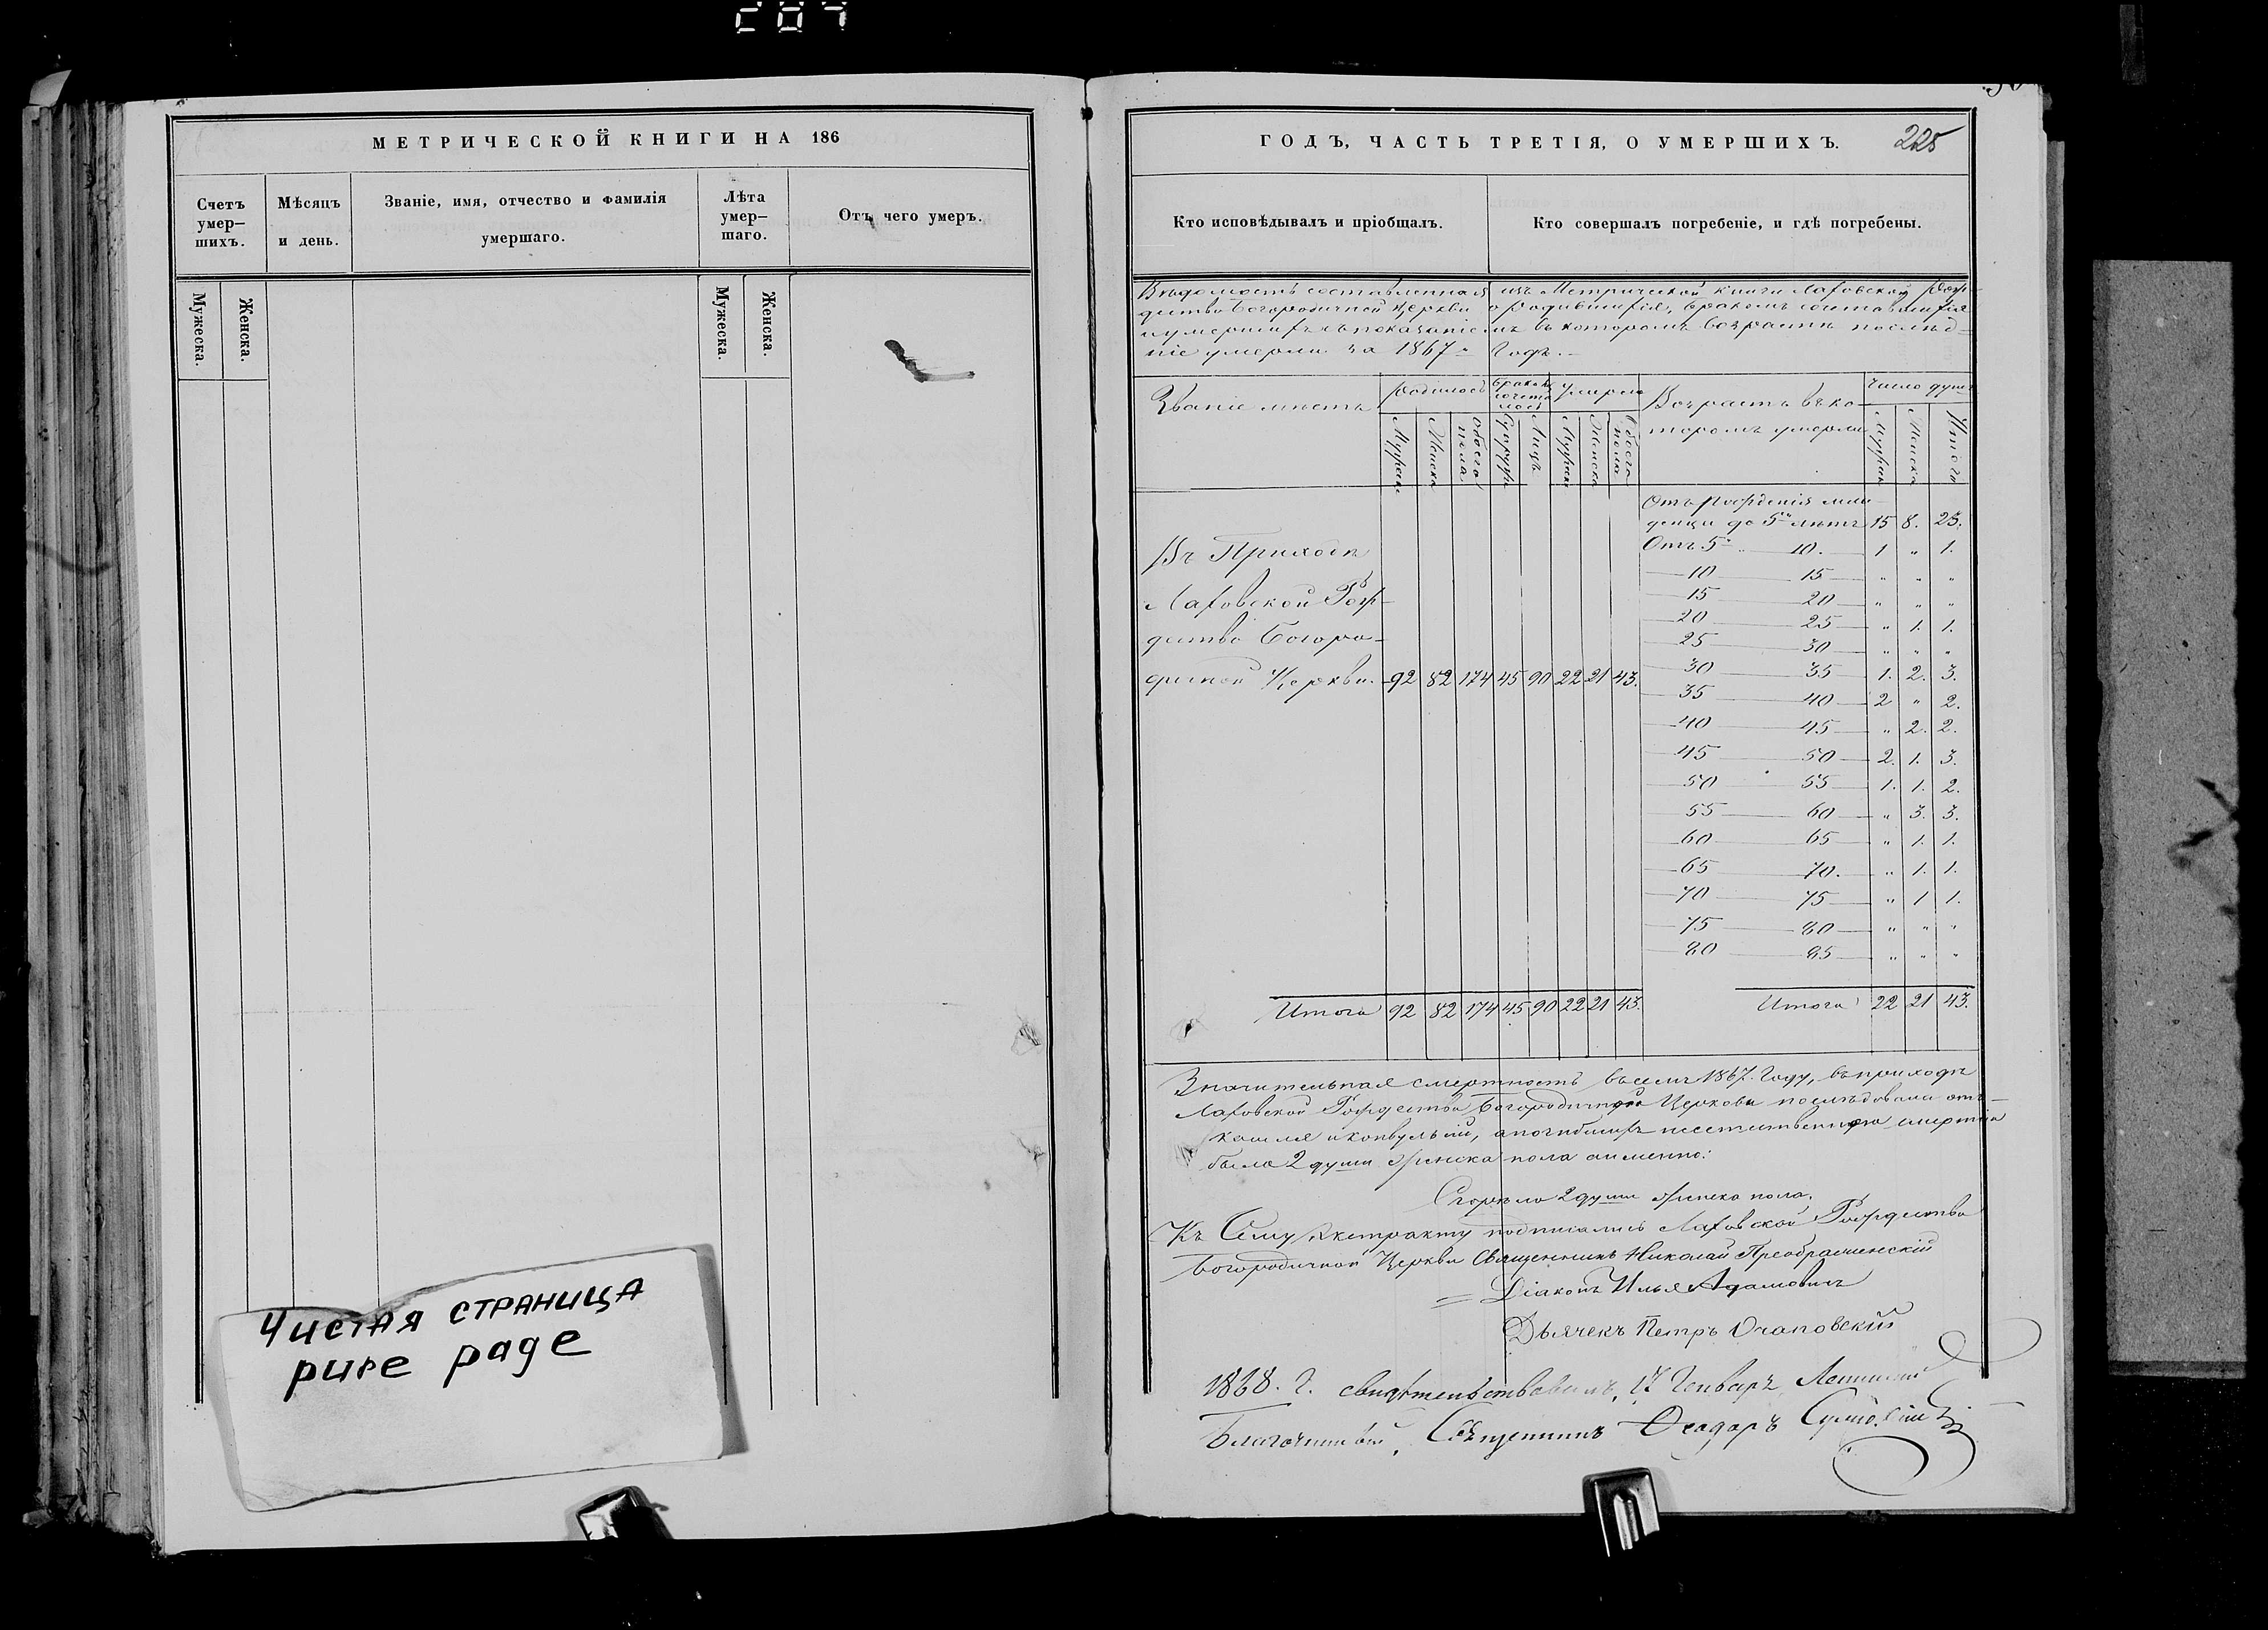 207
МЕТРИЧЕСКОЙ КНИГИ НА 186
Счетъ умер-шихъ.
Мѣсяцъ и день.
Званіе, имя, отчество и фамилія умершаго.
Лѣта умер-шаго.
Отъ чего умеръ.
Мужеска.
Женска.
Мужеска.
Женска.
Чистая страница
pure page
ГОДЪ, ЧАСТЬ ТРЕТІЯ, О УМЕРШИХЪ.
225
Кто исповѣдывалъ и пріобщалъ.
Кто совершалъ погребеніе, и гдѣ погребены.
Вѣдомость составленная изъ Метрической книги Лаховской Рож-
дество Богородичной Церкви о родившихся, бракомъ сочетавшихся
и умершихъ съ показаніемъ въ которомъ возрастѣ послѣд-
ніе умерли за 1867й Годъ.
Званіе мѣстъ
родилось
бракомъ сочета лось
умерло
Возрастъ въ ко-
торомъ умерли
Число душъ
Мужска
Женска
обоего пола
Супруж
Лицъ
Мужска
Женска
обоего пола
Мужска
Женска
Итого
Отъ рожденія мла-
денцы до 5ти лѣтъ 15 8. 23.
Отъ 5 10. 1 „ 1.
10 15 „ „ „
15 20 „ „ „
20 25 „ 1. 1.
25 30 „ „ „
30 35 1. 2. 3.
35 40 2 „ 2.
40 45 „ 2. 2.
45 50 2. 1. 3.
50 55 1. 1. 2.
55 60 „ 3. 3.
60 65 „ 1. 1.
65 70. „ 1. 1.
70 75 „ 1 1.
75 80 „ „ „
80 85 „ „ „
Въ Приходѣ
Лаховской Рож-
дество Богоро-
дичной Церкви. 92 82 174 45 90 22 21 43.
Итого 92 82 174 45 90 22 21 43.
Итого 22 21 43.
Значительная смертность въ семъ 1867. Году, въ приходѣ
Лаховской Рождество Богородичной Церкови послѣдовала отъ
кашля и конвульсій, а погибшихъ неестественною смертію
было 2 души женска пола а именно:
Сгорѣло 2 души женска пола.
Къ Сему Экстракту подписались Лаховской Рождество
Богородичной Церкви Священникъ Николай Преображенскій
Діаконъ Илья Адамовичъ
Дьячекъ Петръ Очаповскій
1868. г. свидѣтельствовалъ, 17 Генваря,
Благочинный, Священникъ Ѳеодоръ